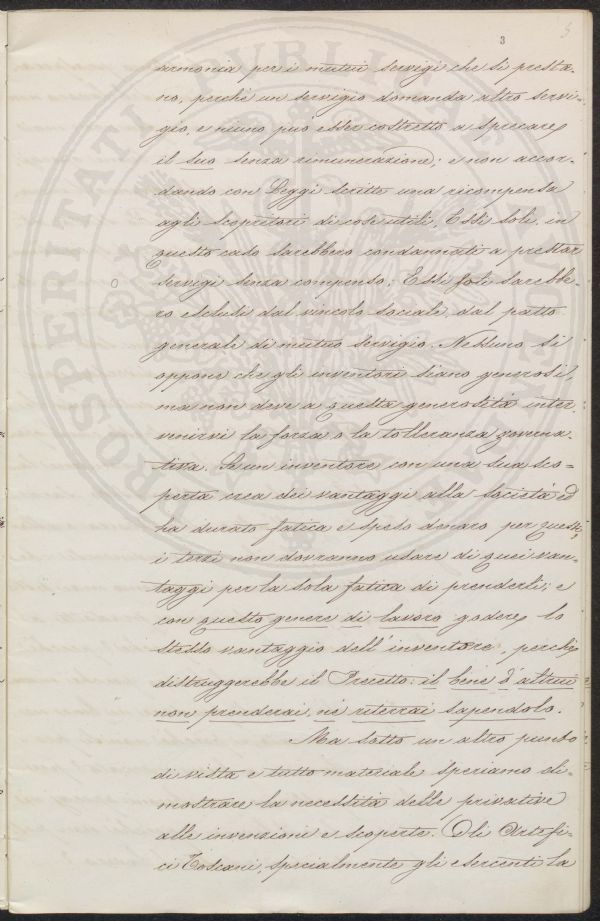 3
armonia per i mutui servigi che si presta-
no, perchè un servigio domanda altro servi-
gio, e niuno può esser costretto a sprecare
il suo senza rimunerazione; e non accor-
dando con Leggi scritte una ricompensa
agli scopritori di cose utili, Essi soli, in
questo caso sarebbero condannati a prestar
servigi senza compenso; Essi soli sarebbe-
ro esclusi dal vincolo sociale, dal patto
generale di mutuo servigio. Nessuno si
oppone che gli inventori siano generosi,
ma non deve a questa generosità inter-
venirvi la forza o la tolleranza governa-
tiva. Se un inventore con una sua sco-
perta crea dei vantaggi alla società ed
ha durato fatica e speso denaro per questi,
i terzi non dovranno usare di quei van-
taggi per la sola fatica di prenderli; e
con questo genere di lavoro godere lo
stesso vantaggio dell'inventore, perchè
distruggerebbe il Precetto: il bene d'altrui
non prenderai, nè riterrai sapendolo.
Ma sotto un altro punto
di vista e tutto materiale speriamo di-
mostrare la necessità delle privative
alle invenzioni e scoperte. Gli Artefi-
ci Toscani, specialmente gli esercenti la
PROSPERITATI PUBLICAE AUGENDAE